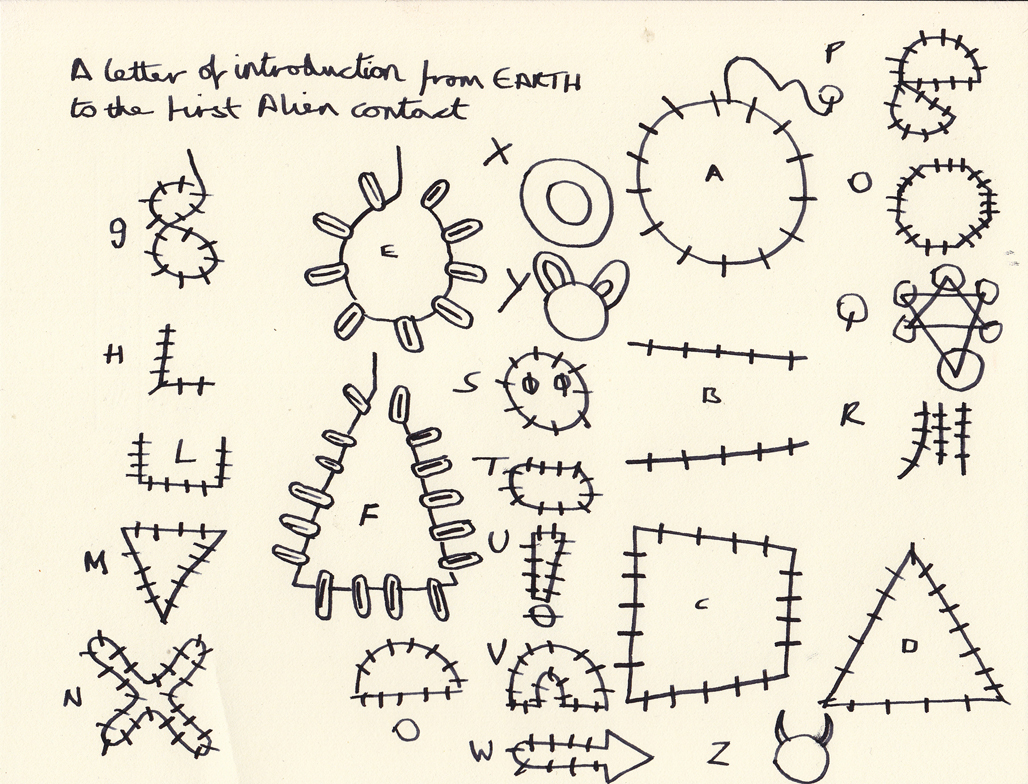 A letter of introduction from EARTH
to the first Alien contact
P
X
A
O
g
E
Y
Q
H
S
B
R
L
T
F
U
M
C
D
V
N
O
W
Z